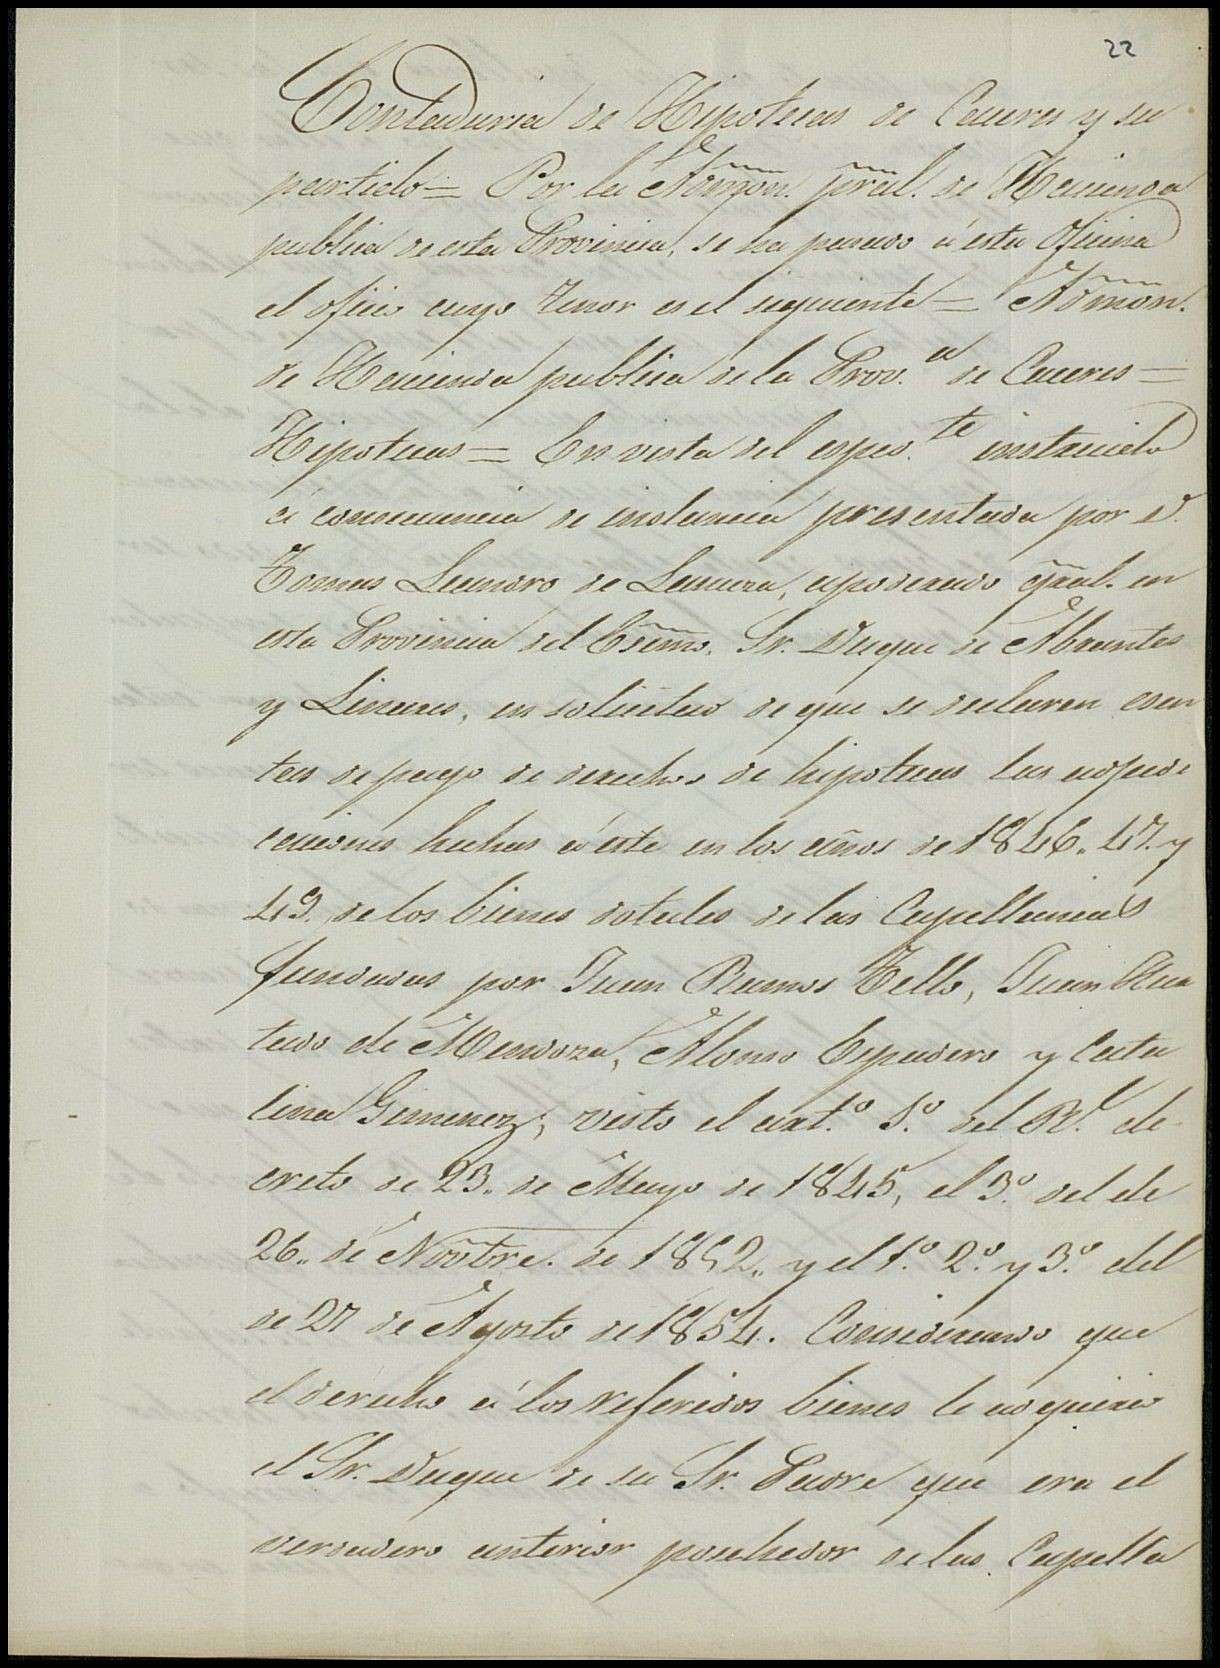 22
Contaduria de Hipotecas de Caceres y su
partido = Por la Admon. pral. de Hacienda
publica de esta Provincia, se ha pasado á esta Oficina
el oficio cuyo tenor es el siguiente = Admon.
de Hacienda publica de la Prov.a de Caceres =
Hipotecas = En vista del esped.te instruido
á consecuencia de instancia presentada por D.
Tomas Leandro de Lanuza, apoderado gral. en
esta Provincia del Esmo. Sr. Duque de Abrantes
y Linares, en solicitud de que se declaren esen
tas de pago de derechos de hipotecas las adjudi
caciones hechas á este en los años de 1846. 47. y
49. de los bienes dotales de las Capellanias
fundadas por Juan Ramos Tello, Juan Hur
tado de Mendoza, Alonso Espadero y Cata
lina Gimenez; visto el art.o 5.o del Rl. de
creto de 23. de Mayo de 1845, el 3.o del de
26.. de Novbre. de 1852.. y el 1.o 2.o y 3.o del
de 27 de Agosto de 1854. Considerando que
el derecho á los referidos bienes le adquirió
el Sr. Duque de su Sr. Padre que era el
verdadero anterior poseedor de las Capella